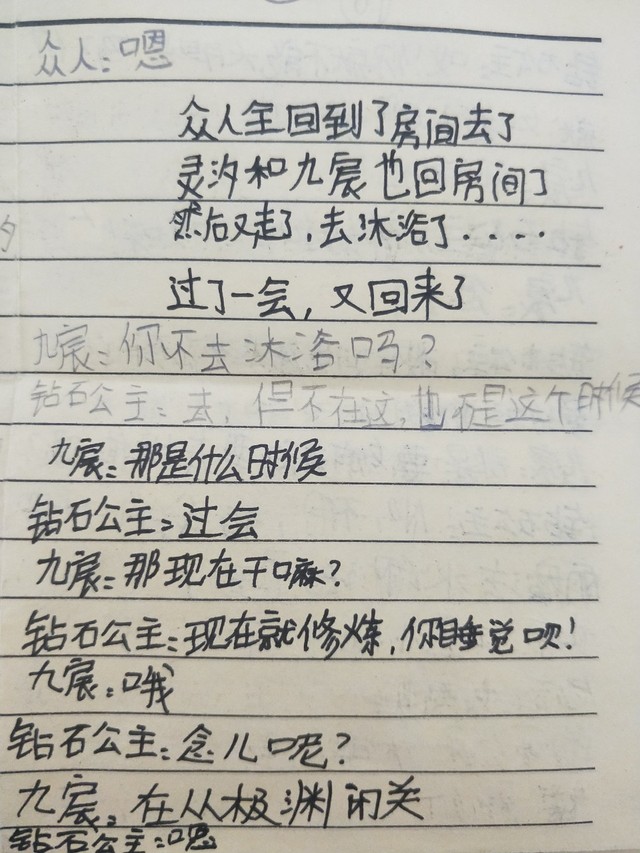 众人：嗯
众人全回到了房间去了
灵汐和九宸也回房间了
然后又走了，去沐浴了·····
过了一会，又回来了
九宸：你不去沐浴吗？
钻石公主：去，但不在这，也不是这个时候
九宸：那是什么时候
钻石公主：过会
九宸：那现在干嘛？
钻石公主：现在就修炼，你睡觉呗！
九宸：哦
钻石公主：念儿呢？
九宸：在从极渊闭关
钻石公主：嗯